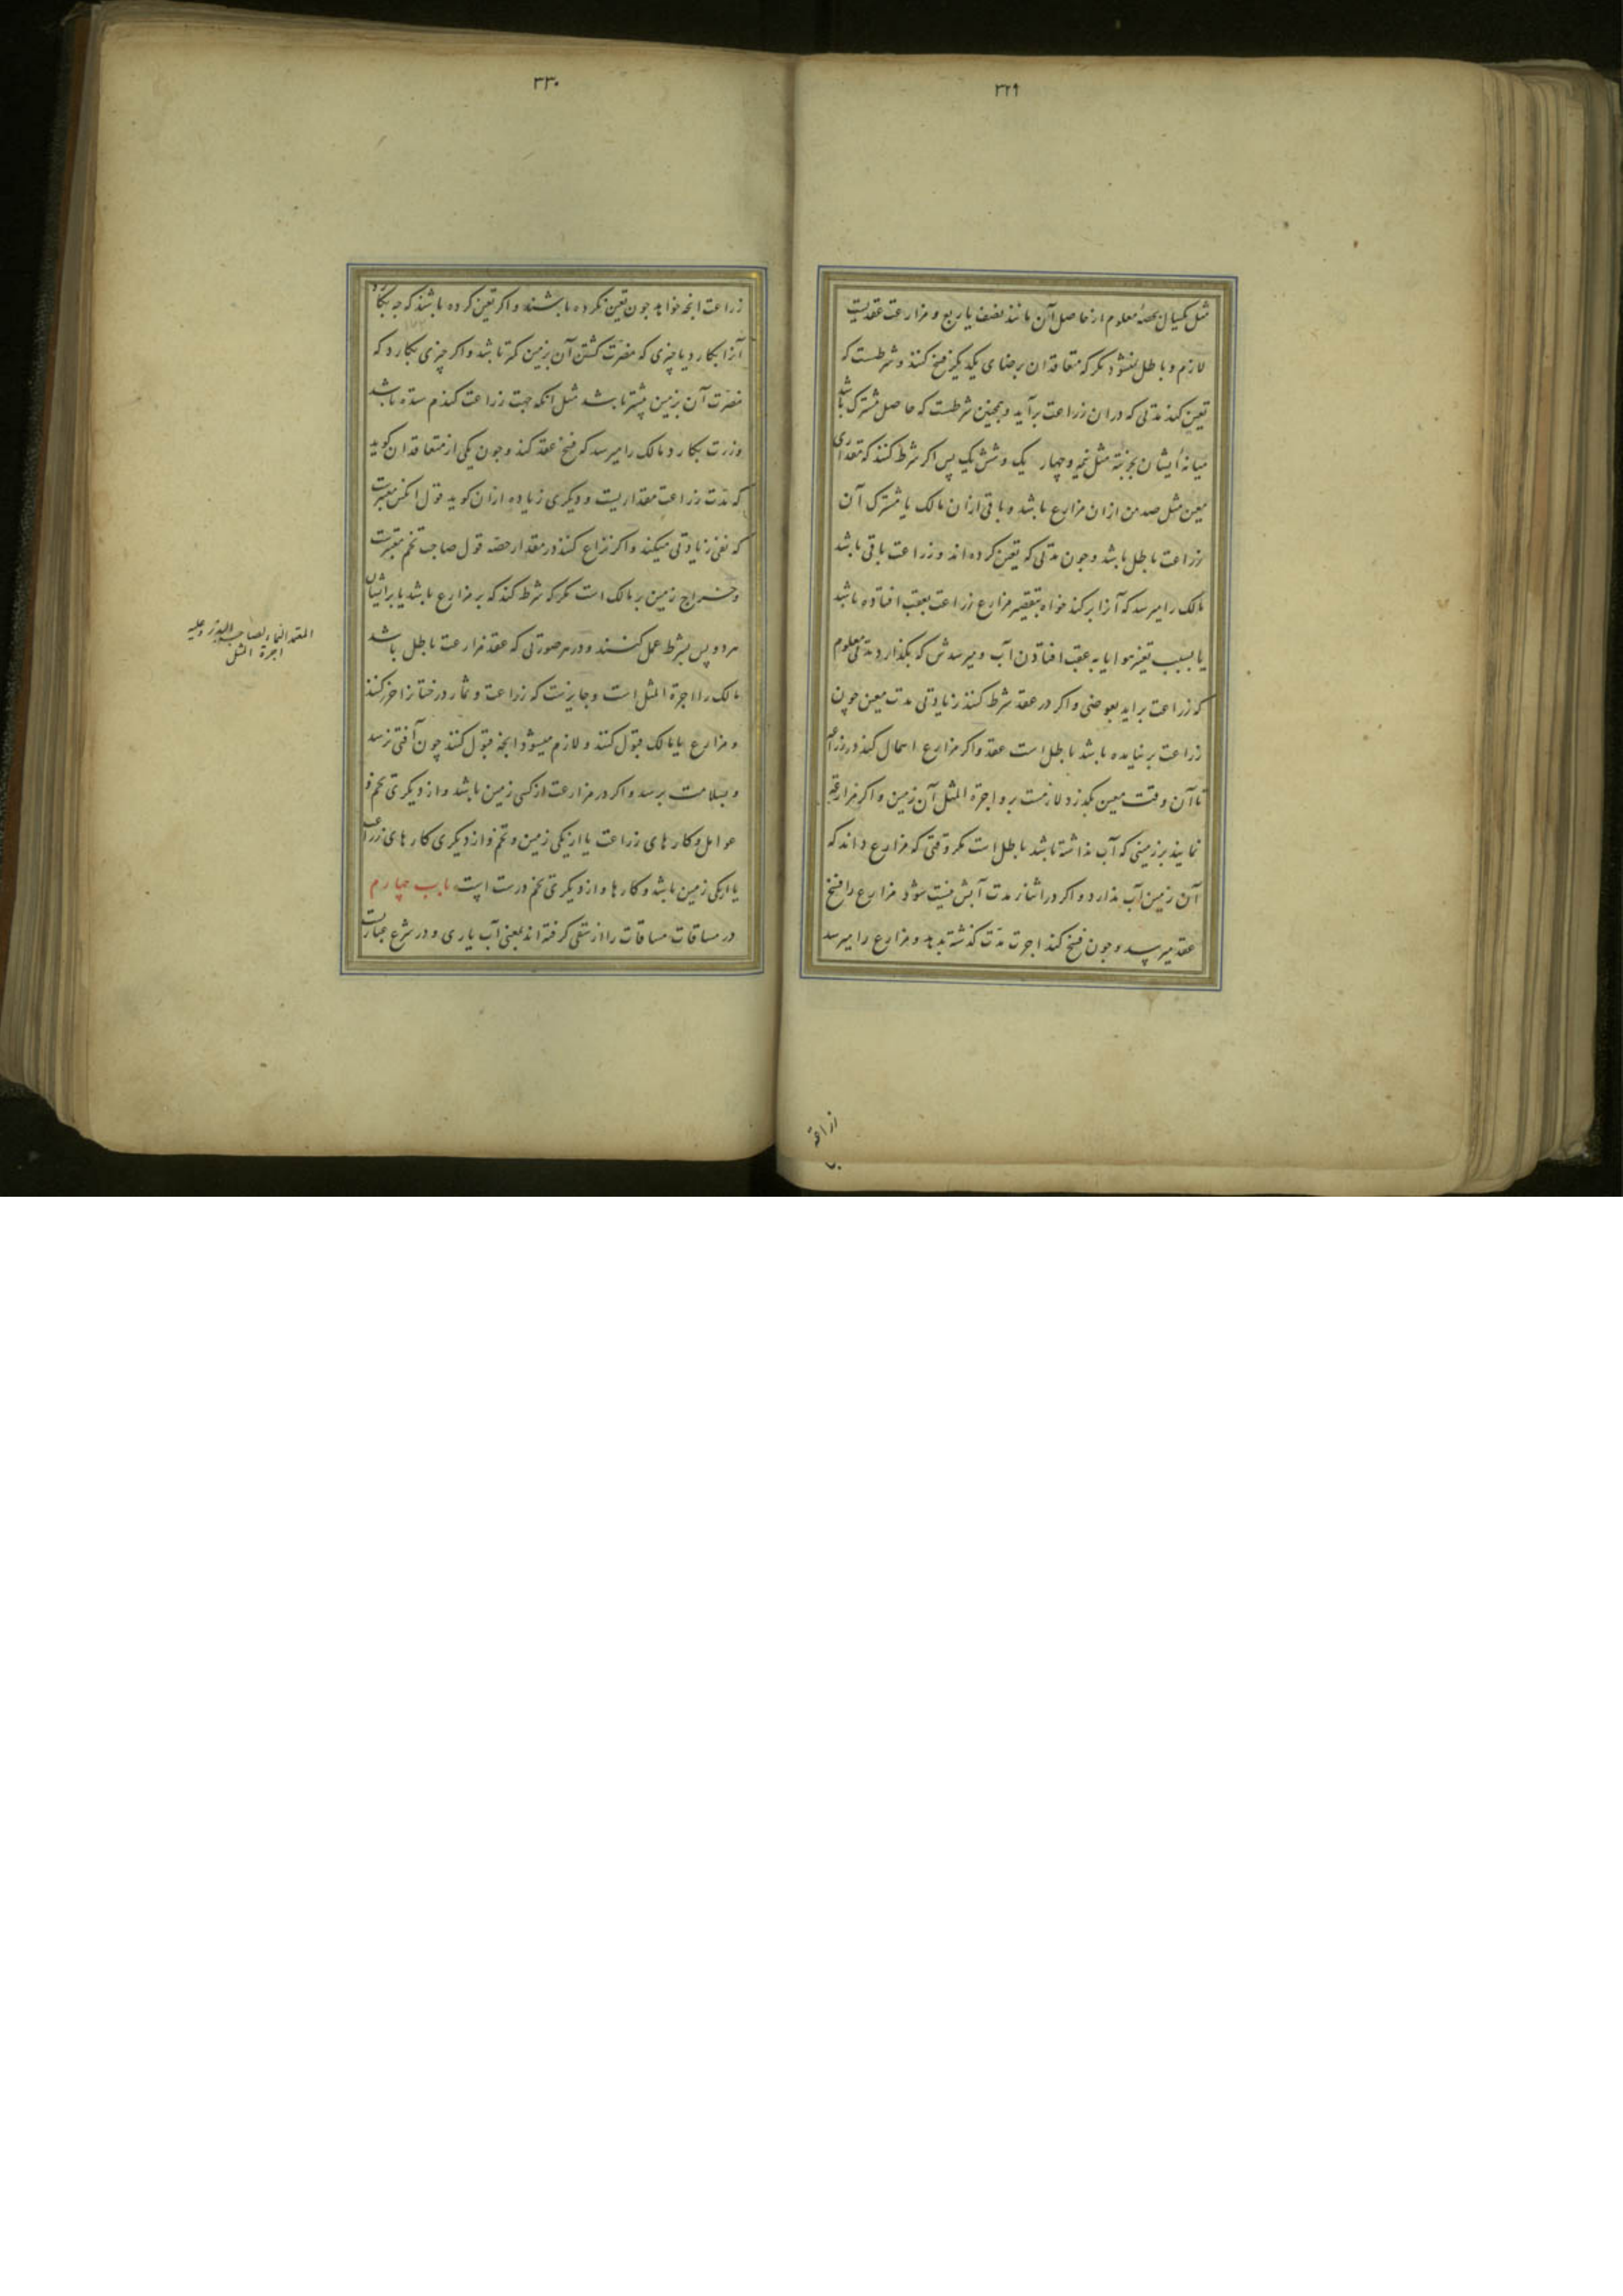 ٣٢٩
مثل یکسال بحصهٔ معلوم از حاصل آن مانند نصف یا ربع و مزارعت عقدیست
لازم و باطل نمیشود مکر که متعاقدان برضای یکدیکر فسخ کنند و شرطست که
تعیین کند مدتی که دران زراعت برآید و همچنین شرطست که حاصل مشترک باشد
میانهٔ ایشان بجزئیه مثل نیمه و چهار یک و شش یک پس اکر شرط کنند که مقداری
معین مثل صد من ازان مزارع باشد و باقی ازان مالک یا مشترک آن
زراعت باطل باشد و چون مدتی که تعیین کرده اند و زراعت باقی باشد
مالک را میرسد که آنرا برکند خواه بتقصیر مزارع زراعت بعقب افتاده باشد
یا بسبب تغیر هوا یا به عقب افتادن آب و میرسدش که بکذارد مدتی معلوم
که زراعت براید بعوضی و اکر در عقد شرط کنند زیادتی مدت معین چون
زراعت برنیامده باشد باطل است عقد و اکر مزارع اهمال کند در زراعة
تا آن وقت معین بکذرد لازمست برو اجرة المثل آن زمین و اکر مزارعة
نمایند بر زمینی که آب نداشته باشد باطل است مکر وقتی که مزارع داند که
آن زمین آب ندارد و اکر در اثناء مدت آبش نیست شود مزارع را فسخ
عقد میرسد و چون فسخ کند اجرت مدت کذشته بدهد و مزارع را میرسد
زراعة
٣٣٠
زراعت انچه خواهد چون تعیین نکرده باشند و اکر تعیین کرده باشند که چه بکارد
آنرا بکارد یا چیزی که مضرت کشتن آن بزمین کمتر باشد و اکر چیزی بکارد که
مضرت آن بزمین بیشتر باشد مثل آنکه جهت زراعت کندم ستده باشد
وزرت بکارد مالک را میرسد که فسخ عقد کند و چون یکی از متعاقدان کوید
که مدت زراعت مقداریست و دیکری زیاده ازان کوید قول آنکس معتبرست
که نفی زیادتی میکند و اکر نزاع کنند در مقدار حصه قول صاحب تخم معتبرست
و خراج زمین بر مالک است مکر که شرط کند که بر مزارع باشد یا بر ایشان
هر دو پس بشرط عمل کنند و در هر صورتی که عقد مزارعت باطل باشد
مالک را اجرة المثل است و جایزست که زراعت و ثمار درختانرا حزر کنند
و مزارع یا مالک قبول کنند و لازم میشود انچه قبول کنند چون آفتی نرسد
و بسلامت برسد و اکر در مزارعت از کسی زمین باشد و از دیکری تخم و
عوامل و کارهای زراعت یا از یکی زمین و تخم و از دیکری کارهای زراعت
یا از یکی زمین باشد و کارها و از دیکری تخم درست است باب چهارم
در مساقات مساقات را از سقی کرفته اند یعنی آب یاری و در شرع عبارتست
المعتمد النماء لصاحب البذر وعلیه
اجرة المثل